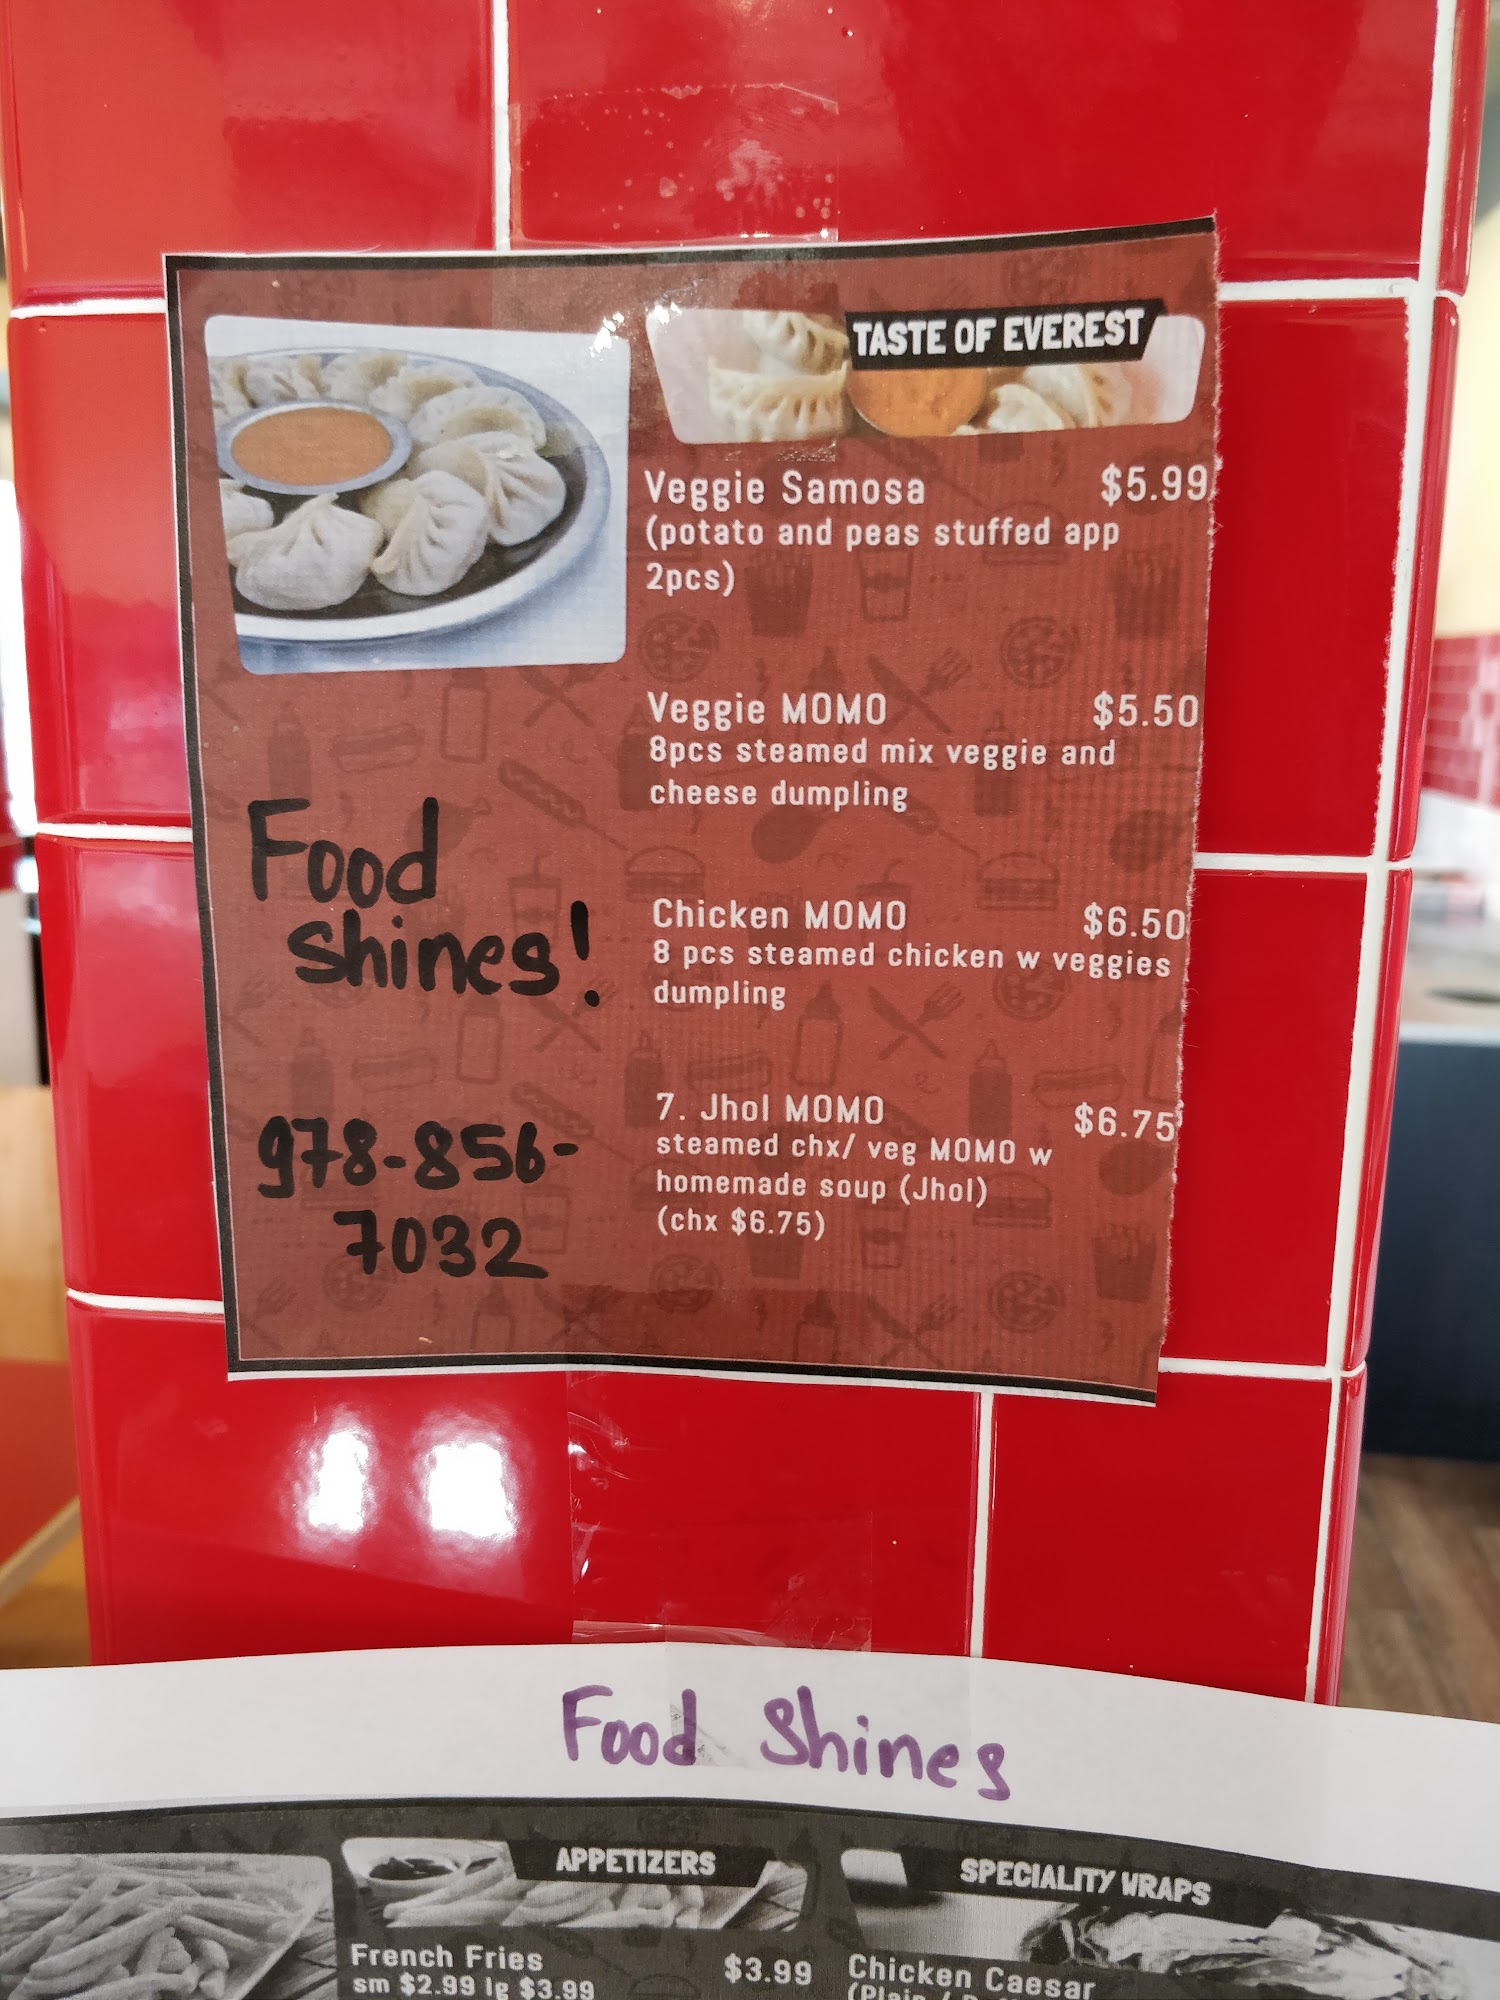 TASTE OF EVEREST
Veggie Samosa $5.99
(potato and peas stuffed app
2pcs)
Veggie MOMO $5.50
8pcs steamed mix veggie and
cheese dumpling
Chicken MOMO $6.50
8 pcs steamed chicken w veggies
dumpling
7. Jhol MOMO $6.75
steamed chx/ veg MOMO w
homemade soup (Jhol)
(chx $6.75)
Food
Shines!
978-856-
7032
Food Shines
APPETIZERS
French Fries $3.99
sm $2.99 lg $3.99
SPECIALITY WRAPS
Chicken Caesar
(Plain /